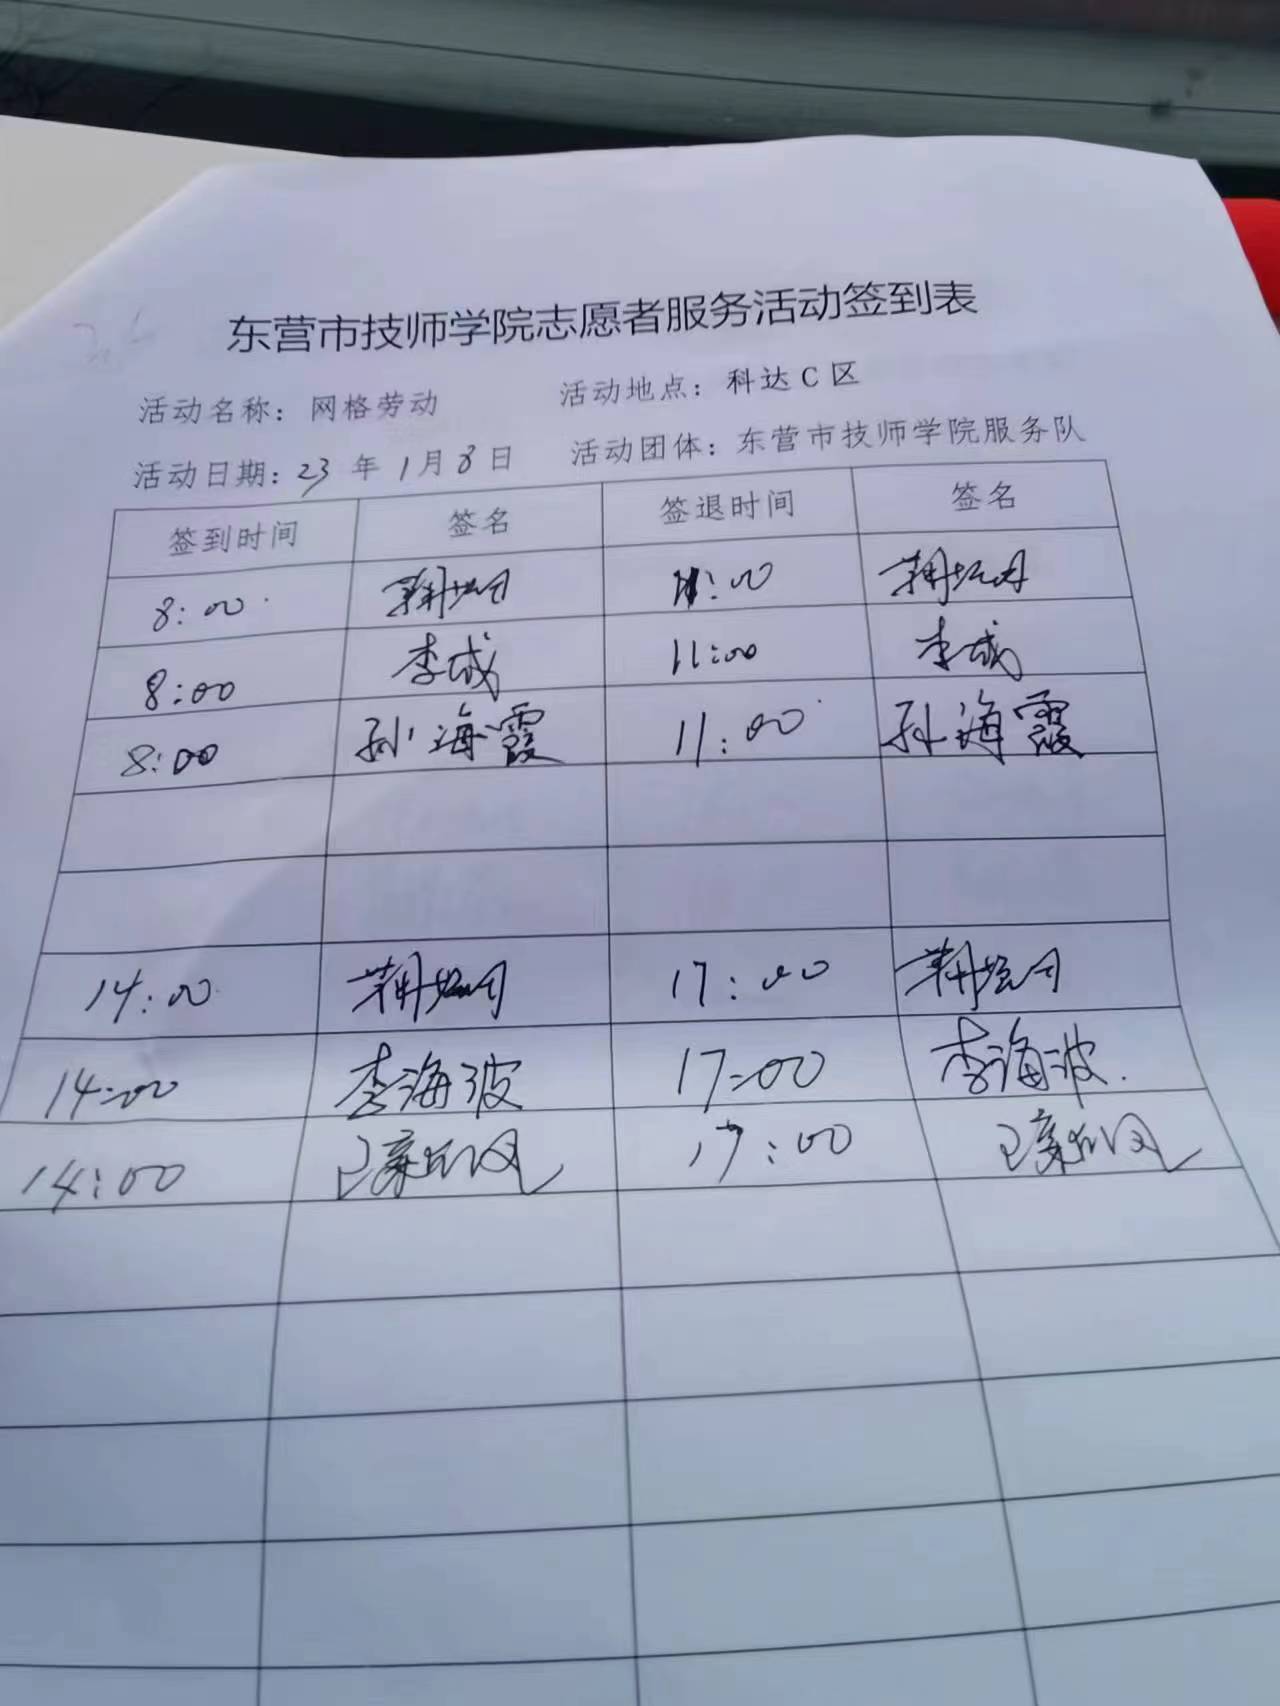 东营市技师学院志愿者服务活动签到表
活动名称：网格劳动 活动地点：科达C区
活动日期：23年1月8日 活动团体：东营市技师学院服务队
签到时间 签名 签退时间 签名
8:00 11:00
8:00 李成 11:00 李成
8:00 孙海霞 11:00 孙海霞
14:00 17:00
14:00 李海波 17:00 李海波
14:00 17:00